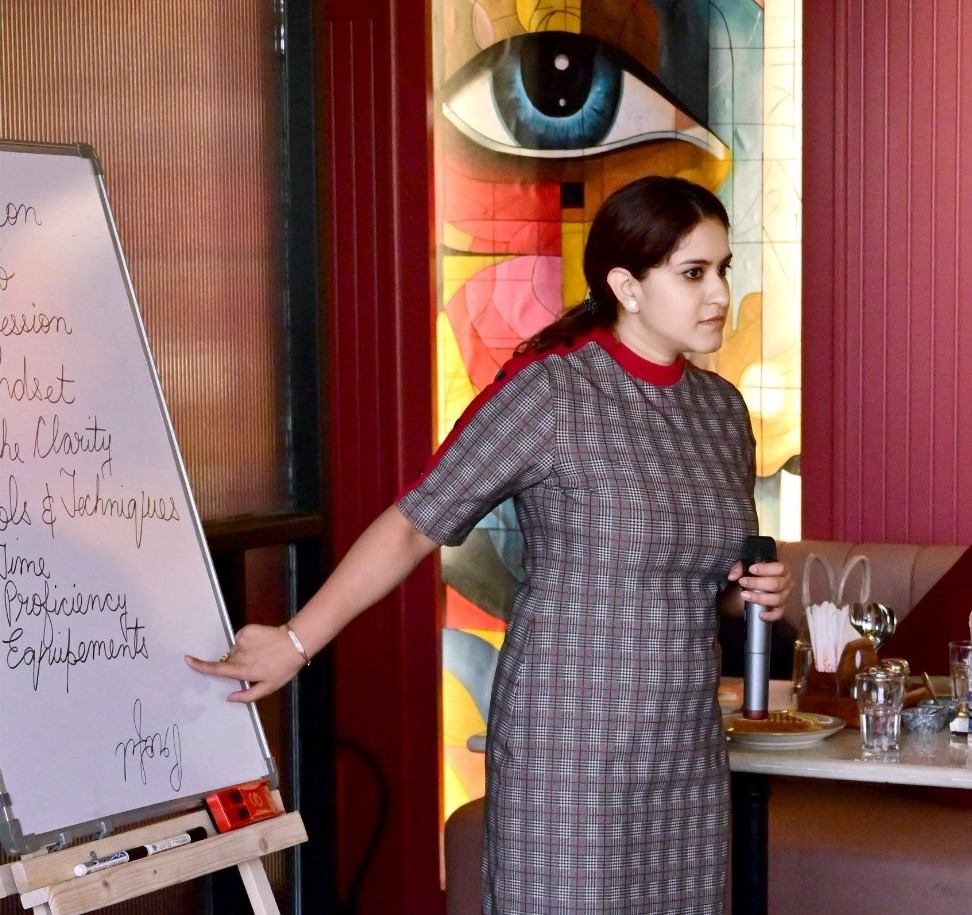 on
o
ession
ndset
he Clarity
ols & Techniques
Time
Proficiency